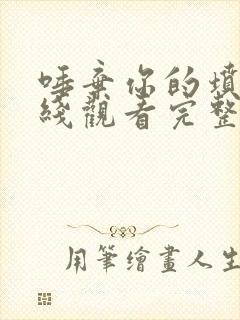 唾棄你的墳
綫觀看完整
用筆繪畫人生